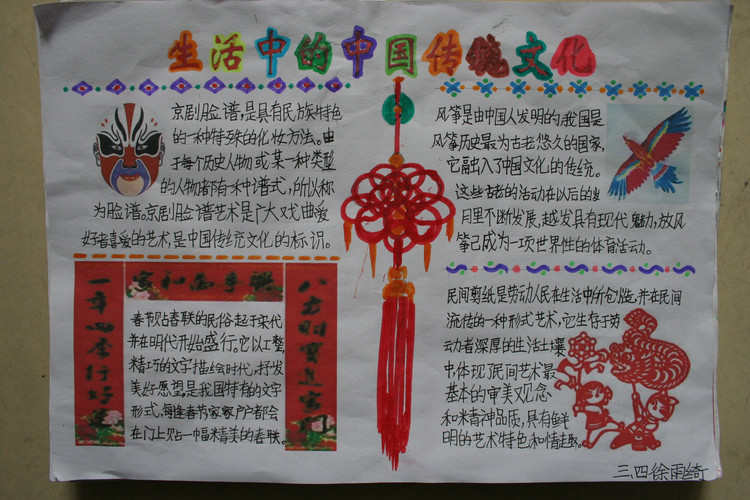 生活中的中国传统文化
京剧脸谱,是具有民族特色
的一种特殊的化妆方法。由
于每个历史人物或某一种类型
的人物都有一种谱式,所以称
为脸谱。京剧脸谱艺术是广大戏曲爱
好者喜爱的艺术,是中国传统文化的标识。
风筝是由中国人发明的,我国是
风筝历史最为古老悠久的国家,
它融入了中国文化的传统。
这些古老的活动在以后的岁
月里不断发展,越发具有现代魅力,放风
筝已成为一项世界性的体育活动。
家和万事兴
一年四季行好运
八方财宝进家门
春节贴春联的民俗起于宋代
并在明代开始盛行。它以工整,
精巧的文字描绘时代,抒发
美好愿望是我国特有的文字
形式,每逢春节家家户户都会
在门上贴一幅精美的春联。
民间剪纸是劳动人民在生活中所创造,并在民间
流传的一种形式艺术,它生存于劳
动者深厚的生活土壤
中体现了民间艺术最
基本的审美观念
和精神品质,具有鲜
明的艺术特色和情趣。
三、四徐雨绮